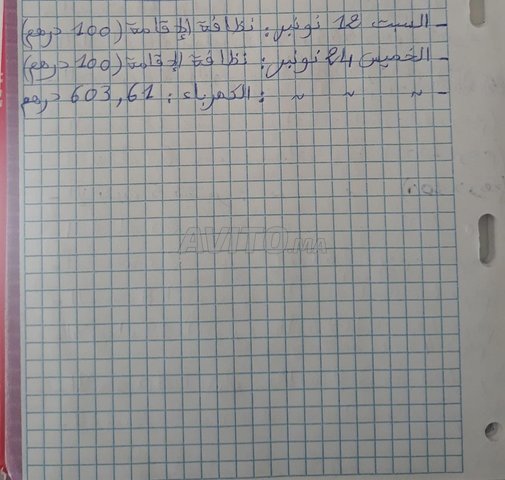 - السبت 12 نونبر : نظافة الإقامة (100 درهم)
- الخميس 24 نونبر : نظافة الإقامة (100 درهم)
- ~ ~ ~ : الكهرباء : 603,61 درهم
AVITO.MA